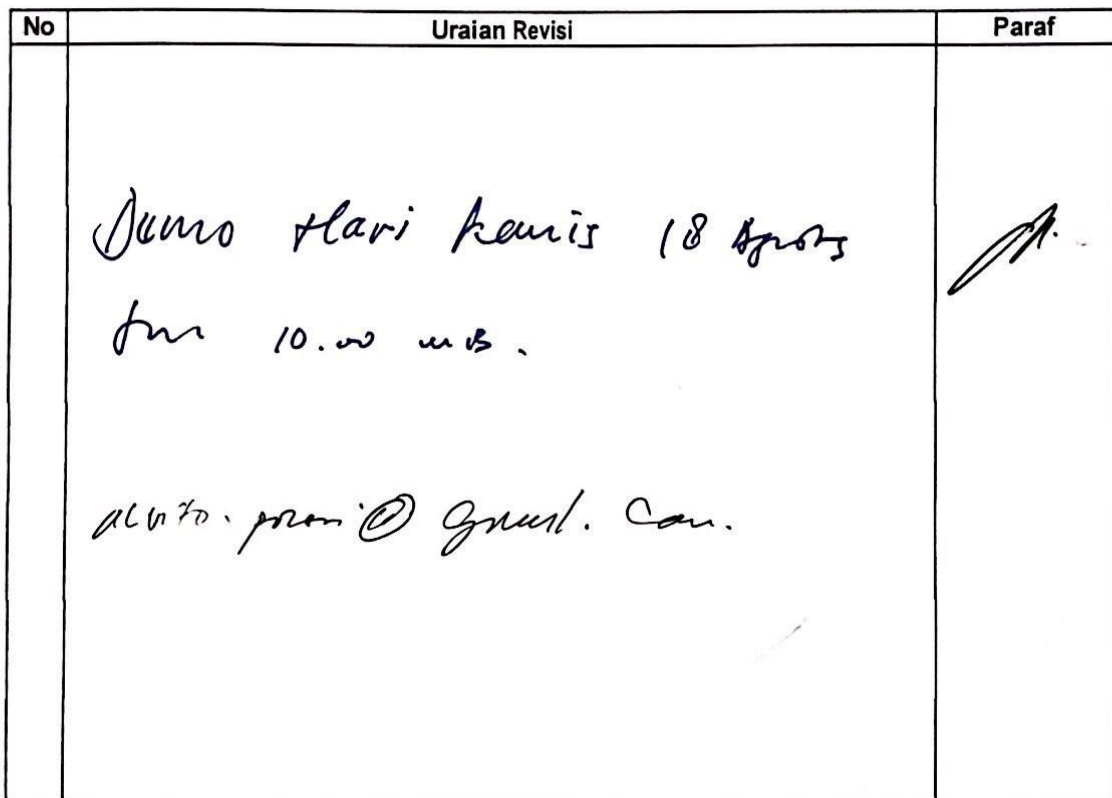 No Uraian Revisi Paraf
Demo Hari kamis 18 Agusts
Jam 10.00 WIB.
@ gmail. Com.